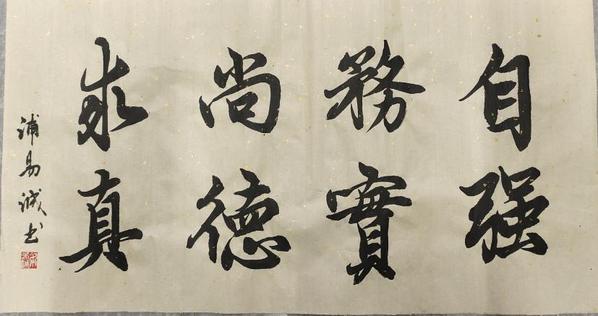 自强
務實
尚德
求真
浦易誠书